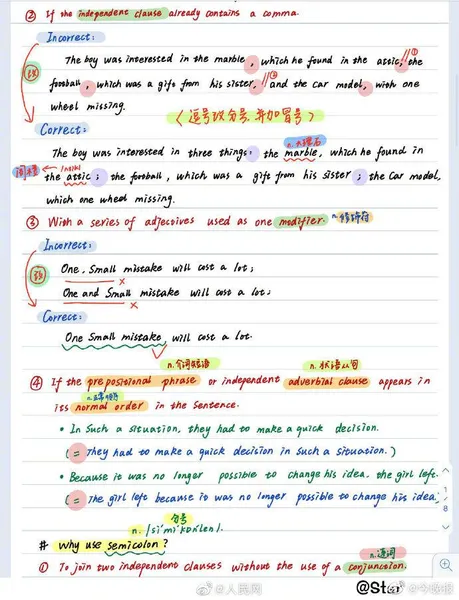 ② If the independent clause already contains a comma.
Incorrect:
The boy was interested in the marble, which he found in the attic, the
football, which was a gift from his sister, and the car model, with one
wheel missing.
〈逗号改分号,并加冒号〉
Correct:
n.大理石
The boy was interested in three things: the marble, which he found in
阁楼
the attic; the football, which was a gift from his sister; the car model,
which one wheel missing.
③ With a series of adjectives used as one modifier. n.修饰符
Incorrect:
One, Small mistake will cost a lot;
One and Small mistake will cost a lot;
Correct:
One Small mistake will cost a lot.
n.介词短语 n.状语从句
④ If the prepositional phrase or independent adverbial clause appears in
n.正常顺序
its normal order in the sentence.
• In Such a situation, they had to make a quick decision.
(= They had to make a quick decision in such a situation.)
• Because it was no longer possible to change his idea, the girl left.
(= The girl left because it was no longer possible to change his idea.
分号
n. /ˌsemiˈkəʊlən/.
# Why use semicolon?
n.连词
① To join two independent clauses without the use of a conjunction.
@Star
@人民网
@今晚报